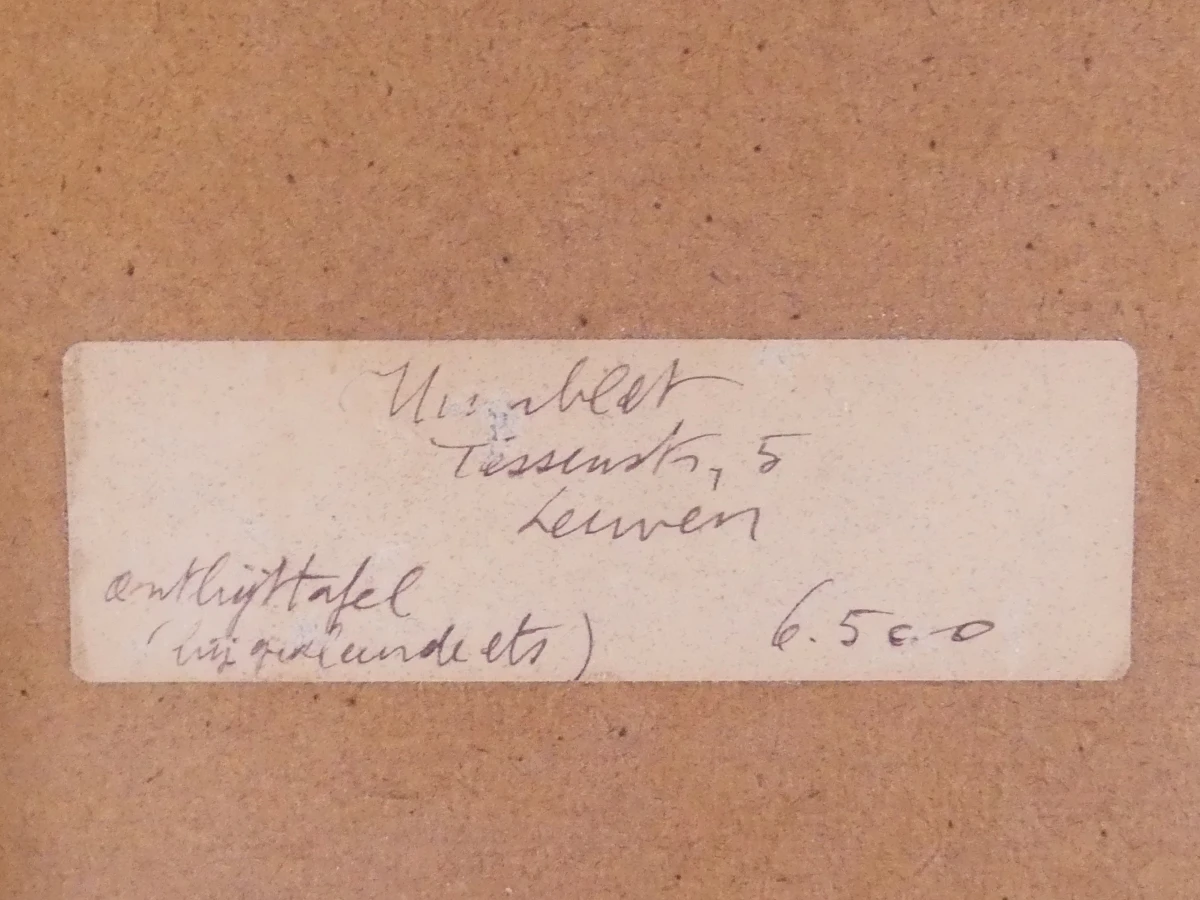 Humblet
Tessenstr, 5
Leuven
ontbijttafel
(bijgekleurde ets)
6.500